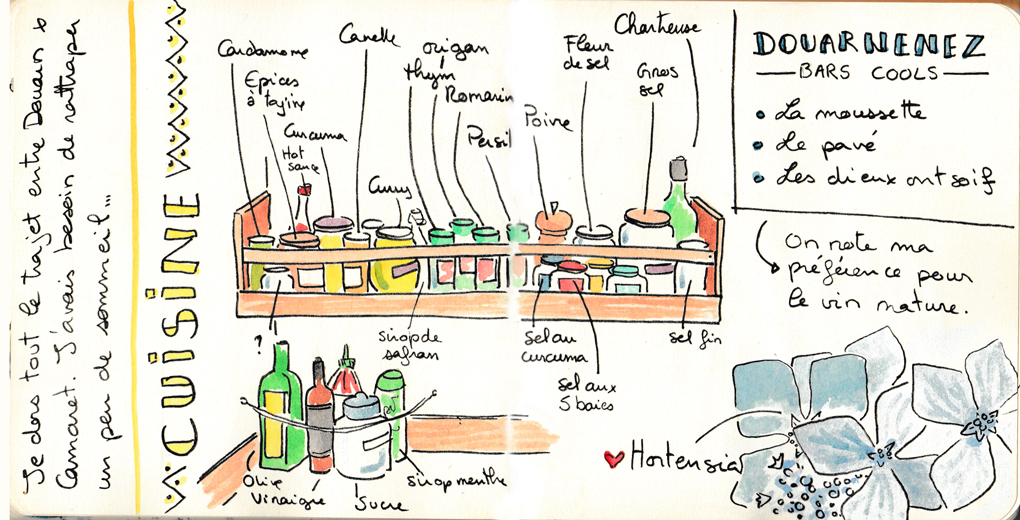 Je dors tout le trajet entre Douarn &
Camaret. J'avais besoin de rattraper
un peu de sommeil...
CUISINE
Cardamome
Canelle
Epices
à tajine
Curcuma
Hot
sauce
Curry
origan
thym
Romarin
Persil
Poivre
Fleur
de sel
Gros
sel
Chartreuse
?
sirop de
safran
sel au
curcuma
sel aux
5 baies
sel fin
Olive
Vinaigre
Sucre
sirop menthe
DOUARNENEZ
BARS COOLS
• La moussette
• Le pavé
• Les dieux ont soif
On note ma
préférence pour
le vin nature.
Hortensia